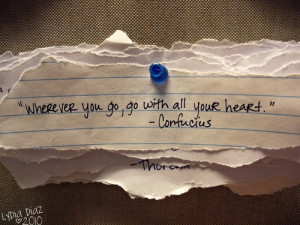 "Wherever you go, go with all your heart."
- Confucius
Lydia Diaz
♡2010